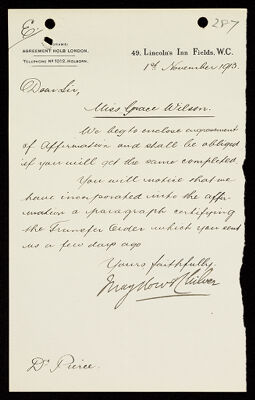 E.
287
TELEGRAMS:
AGREEMENT HOLB LONDON.
TELEPHONE No 1012, HOLBORN.
49, Lincoln's Inn Fields, W.C.
1st November 1913.
Dear Sir,
Miss Grace Wilson.
We beg to enclose engrossment
of Affirmation and shall be obliged
if you will get the same completed.
You will notice that we
have incorporated into the affir-
mation a paragraph certifying
the Transfer Order which you sent
us a few days ago
Yours faithfully,
Dr Pierce.